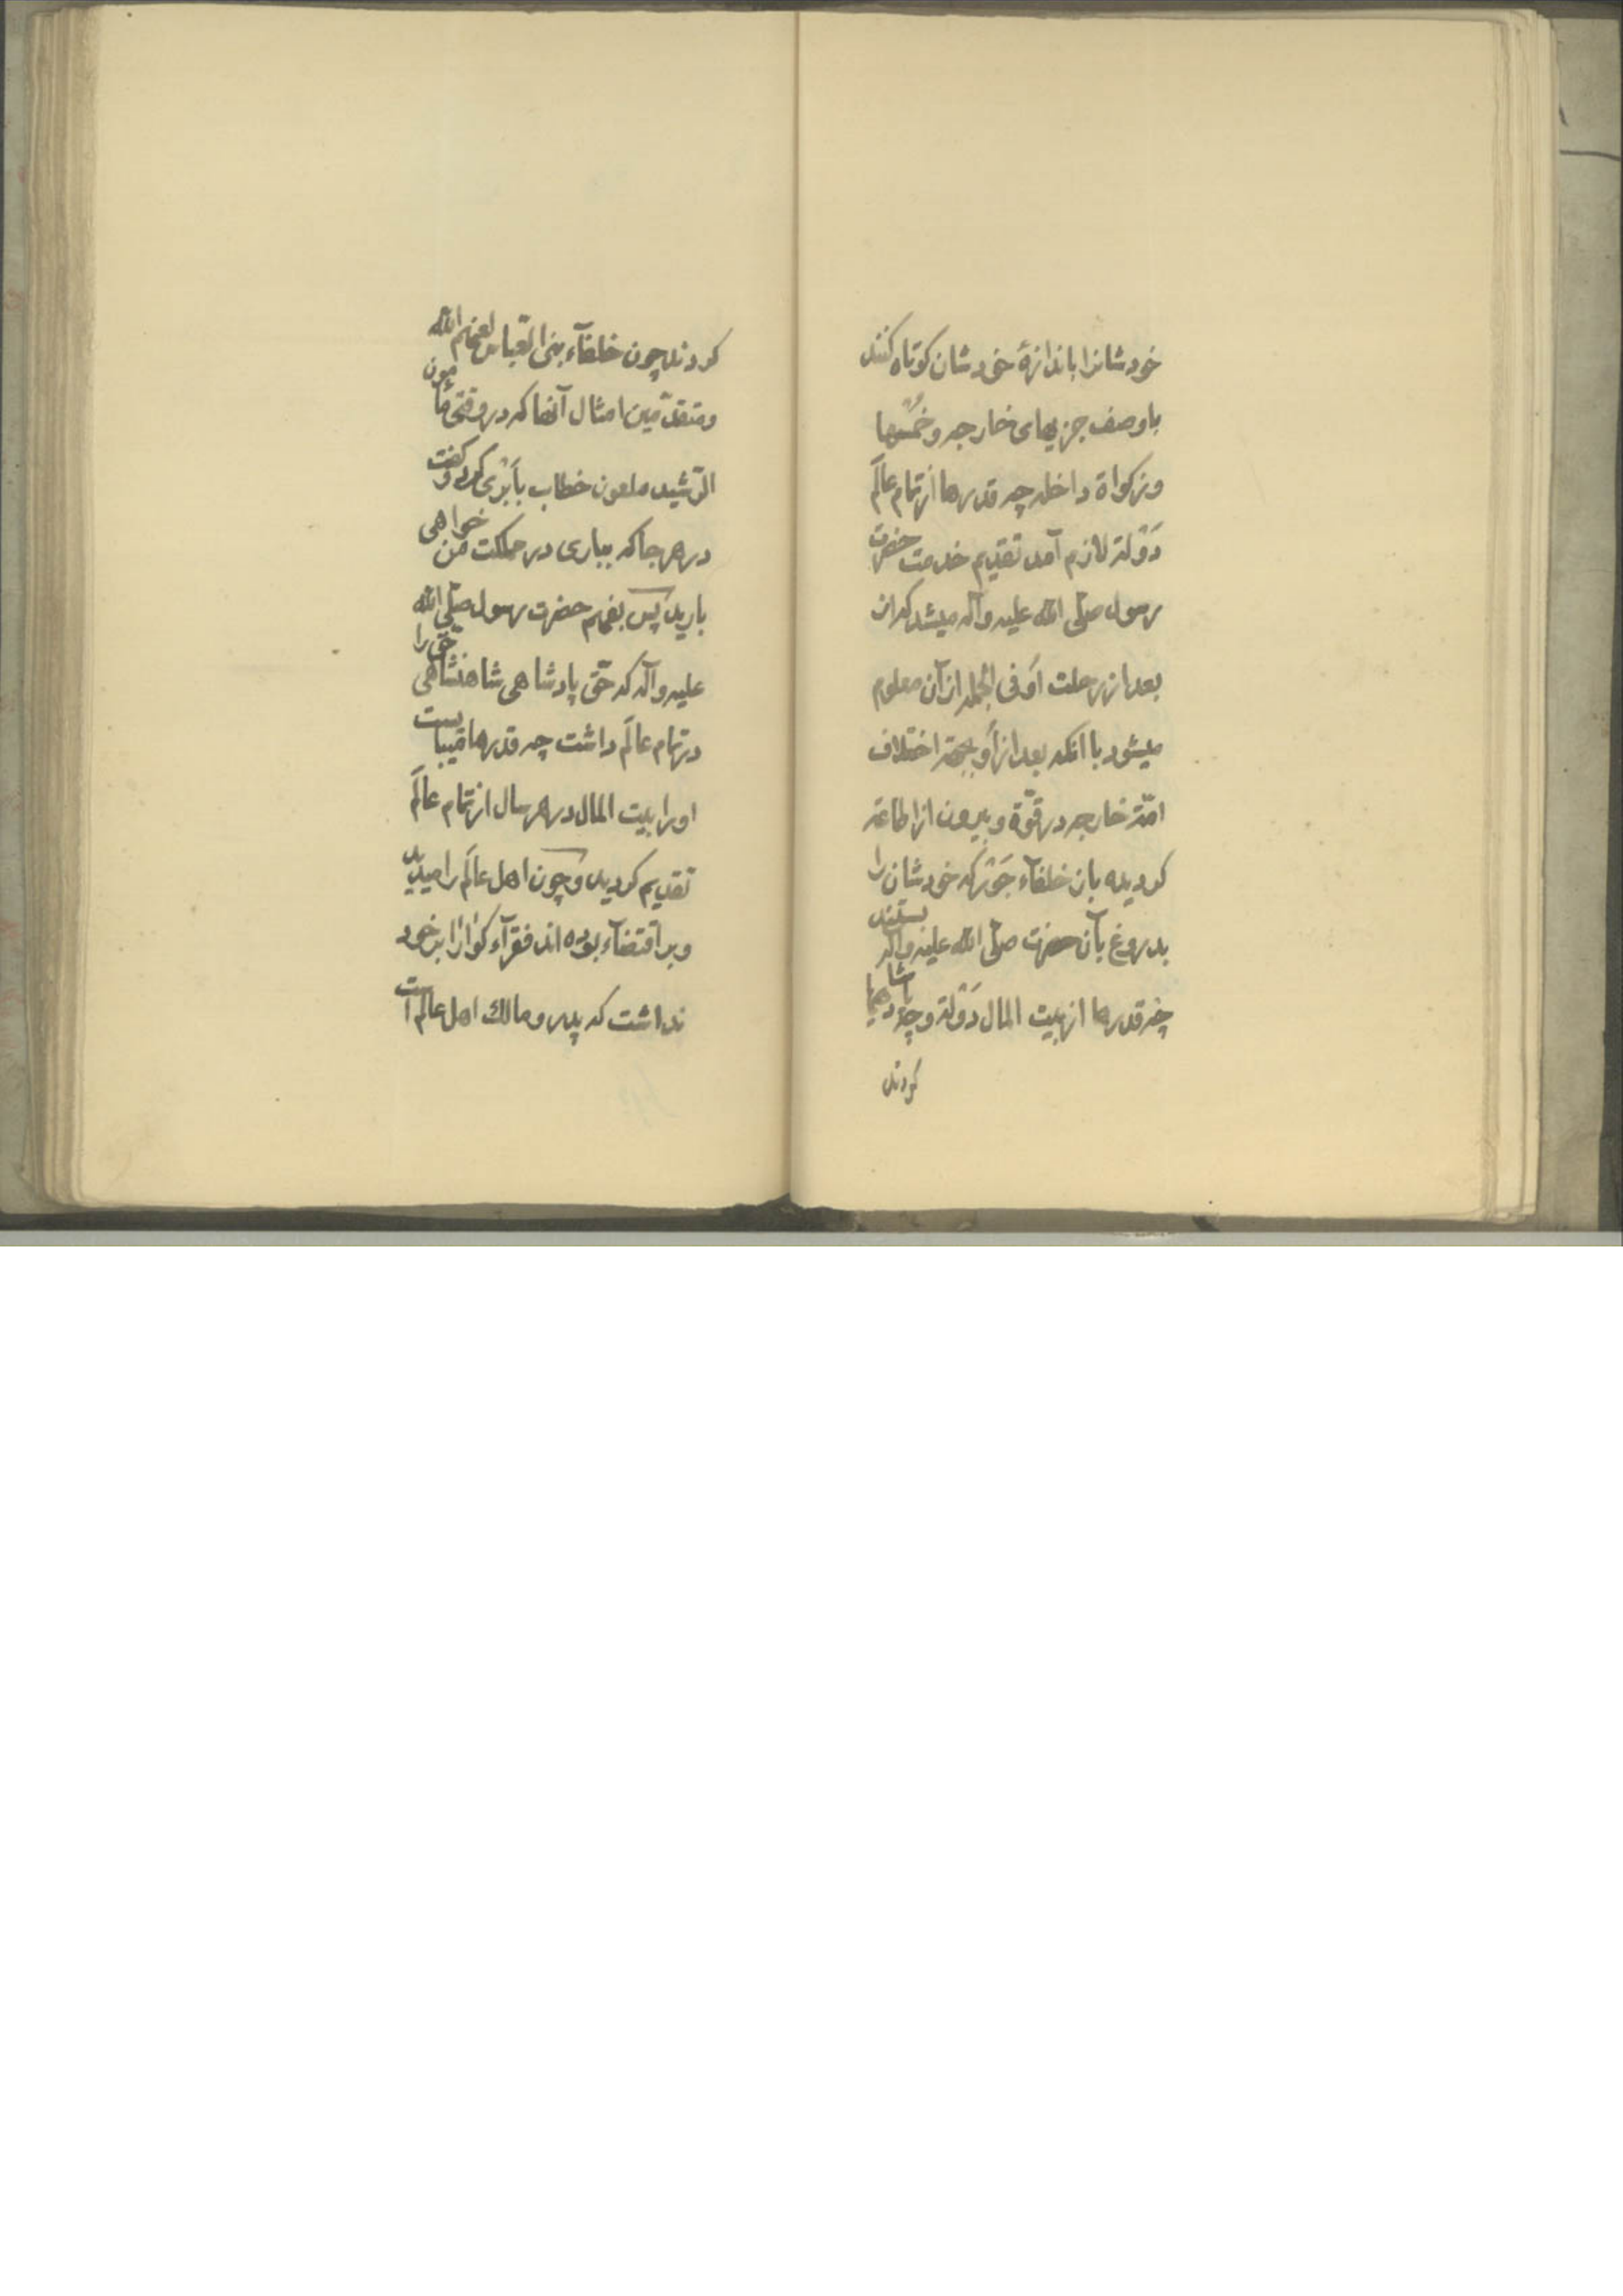 خودشانرا باندازهٔ خودشان کوتاه کنند
با وصف جزیهای خارجه و خُمسها
و زکواة داخله چه قدرها از تمام عالَم
دَوْلة لازم آمد تقدیم خدمت حضرت
رسول صلّی الله علیه وآله میشد که از آن
بعد از رحلت او فی الجمله از آن معلوم
میشود با انکه بعد از او بجهة اختلاف
امّة خارجه در قوّة و بیرون از اطاعة
کردیده بان خلفآء جَوْر که خودشان را
بدروغ بآن حضرت صلّی الله علیه وآله بستند
چه قدرها از بیت المال دَوْلة و چه پادشاهیها
کردند
کردند چون خلفآء بنی العبّاس لعنهم الله
و متقدّمین امثال آنها که در وقتی مأمون
الرّشید ملعون خطاب باَبْری کرد و کفت
در هر جا که بباری در مملکت من خواهی
بارید پس بفهم حضرت رسول صلّی الله
علیه وآله که حقّ پادشاهی شاهنشاهی حقّ را
در تمام عالَم داشت چه قدرها میبایست
او را بیت المال در هر سال از تمام عالَم
تقدیم کردید و چون اهل عالَم را میدید
و بر اقتضآء بوده اند فقرآء کوارا بر خود
نداشت که پدر و مالك اهل عالَم است